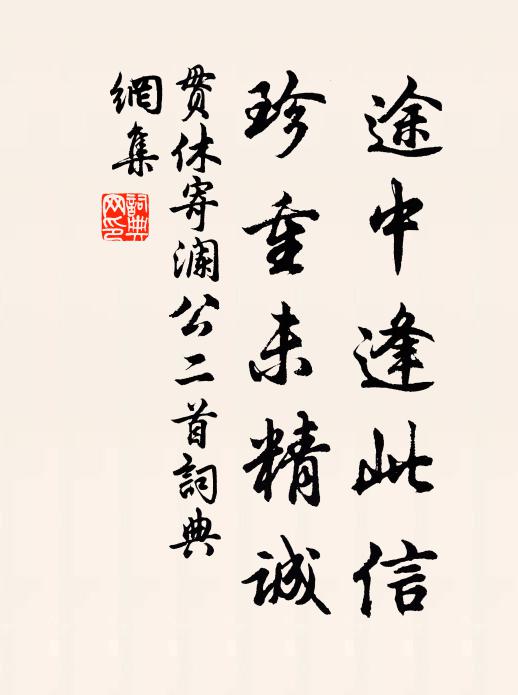 途中逢此信
珍重未精誠
貫休寄瀾公二首詞典
網集
詞典
网印